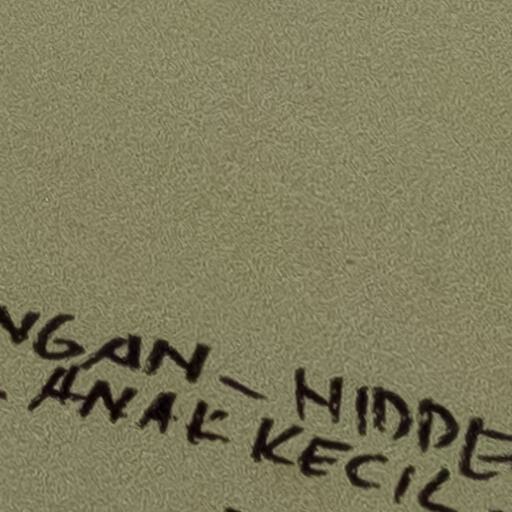 NGAN - HIDDE
- ANAK KECIL